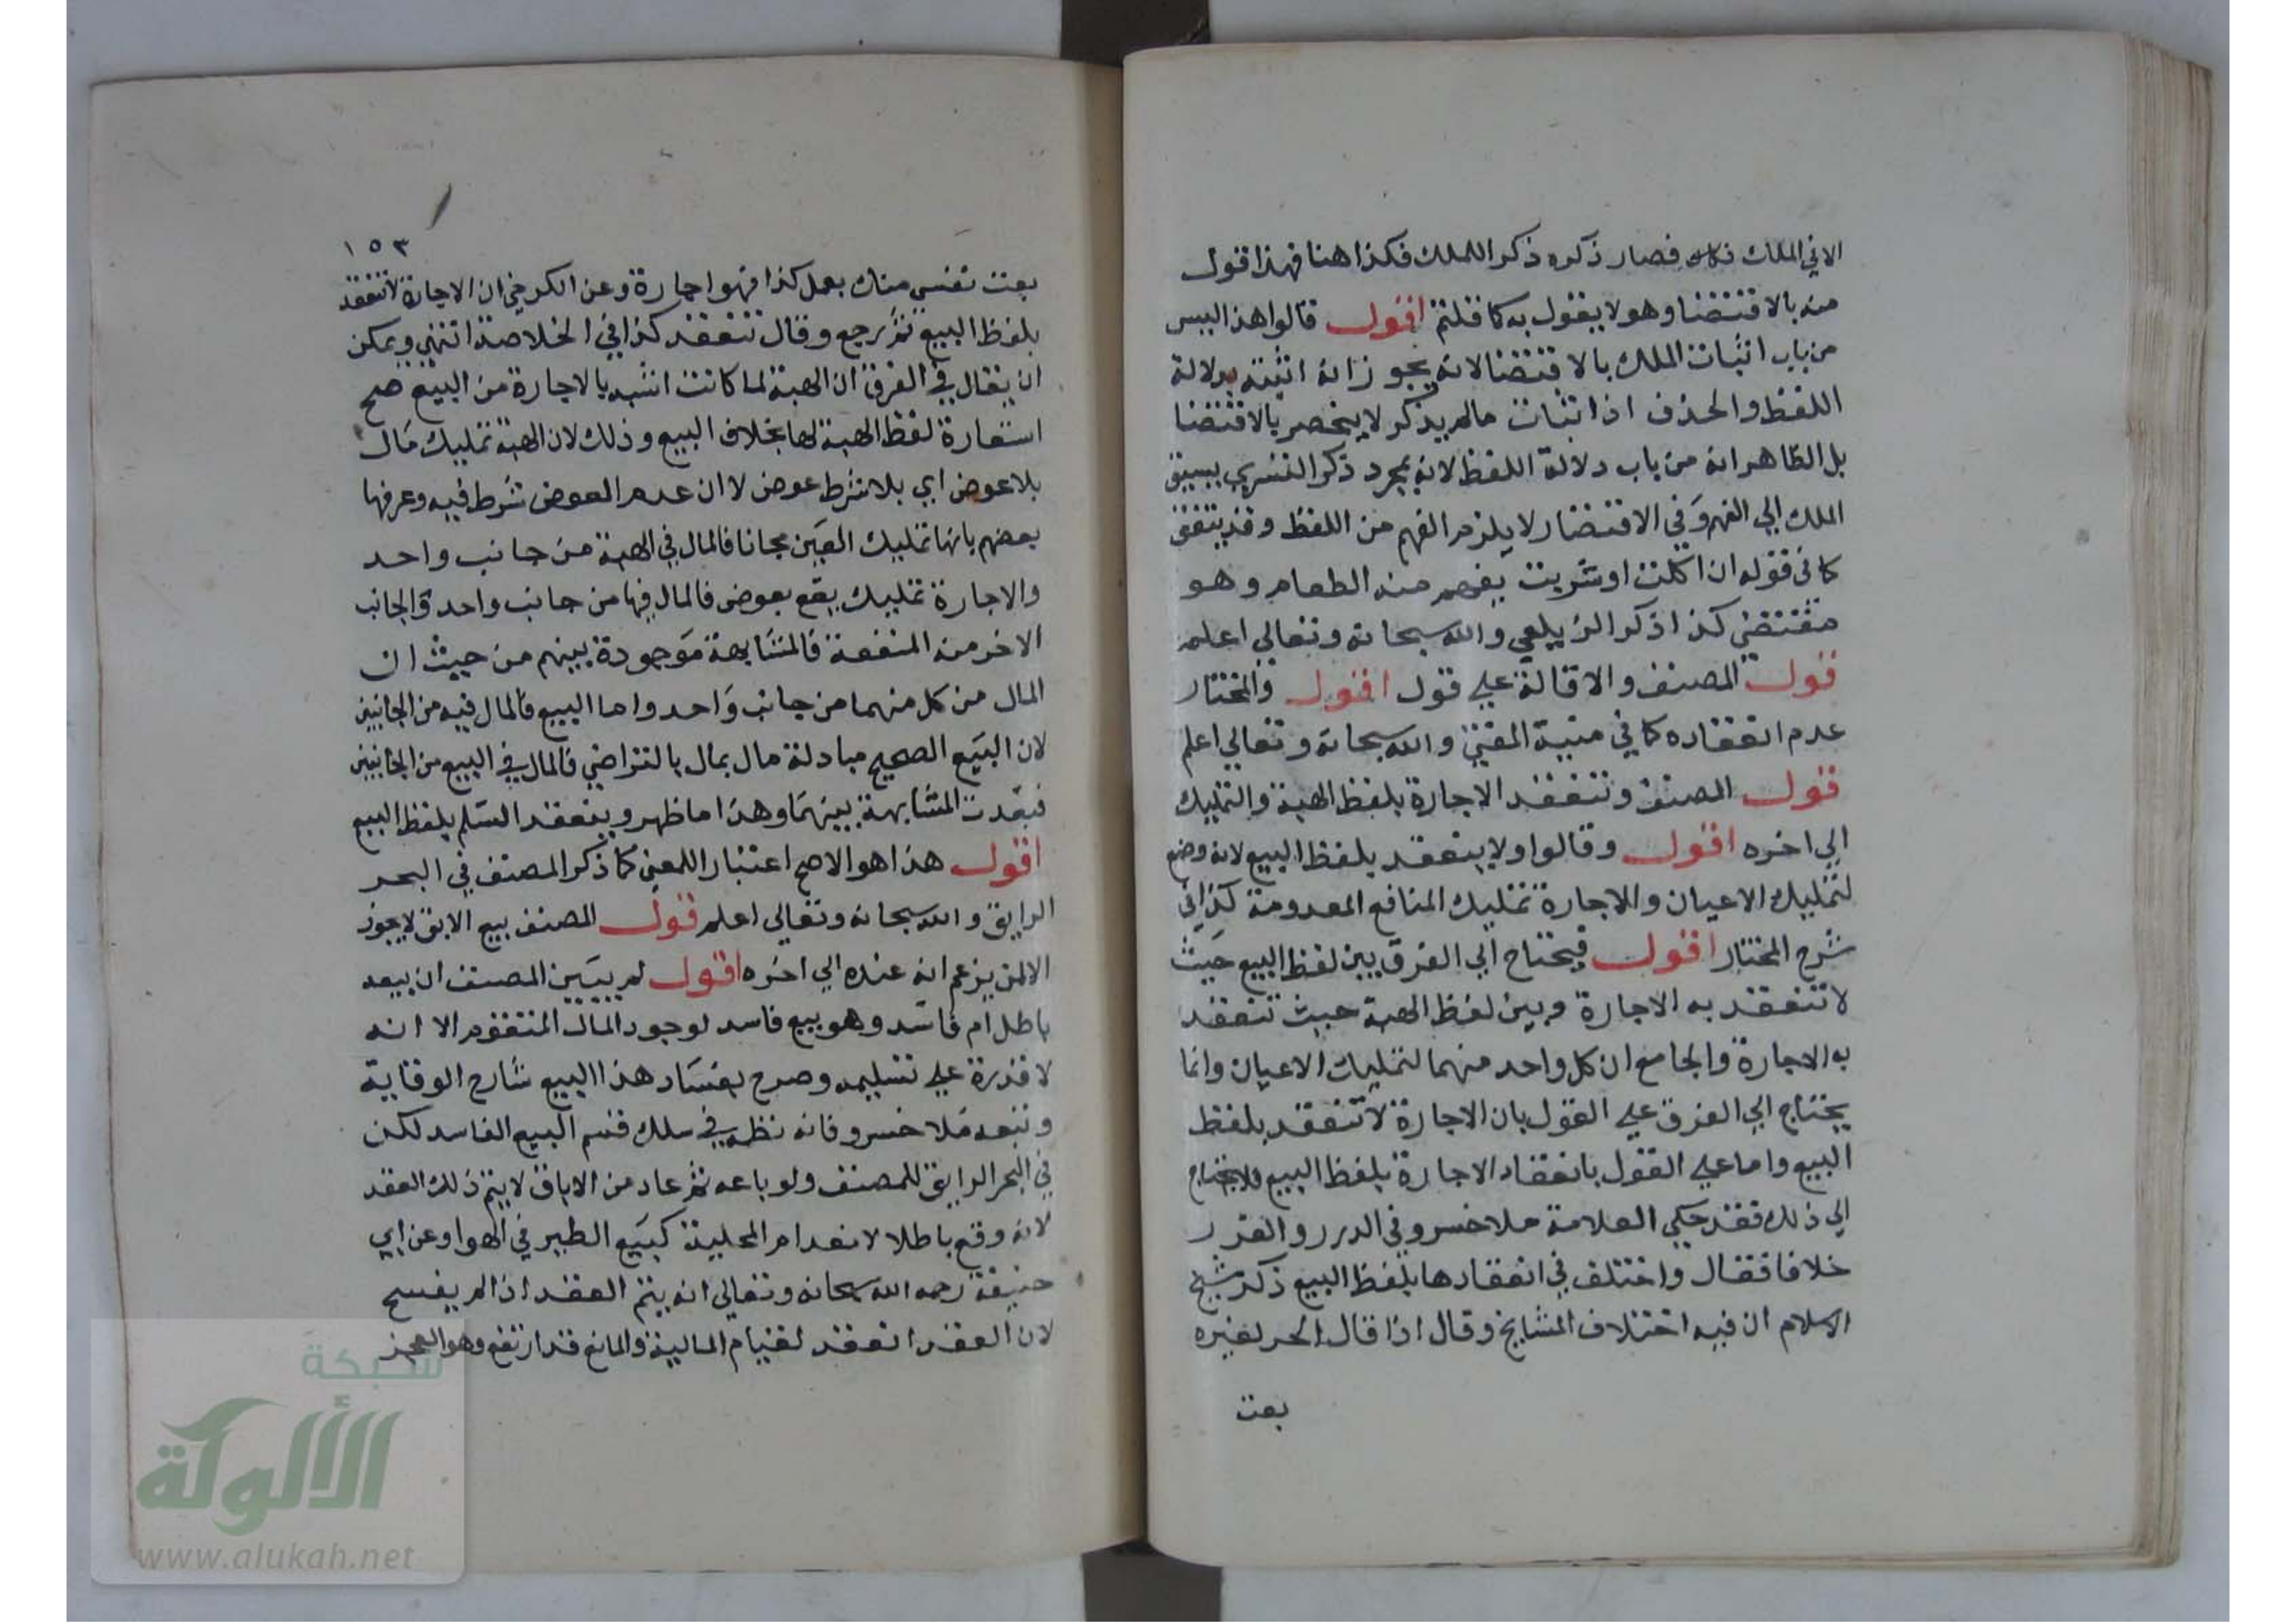 الا في الملك فصار ذكره ذكر الملك فكذا هنا فهذا قول
منه بالاقتضا وهو لا يقول به كما قلتم اقول قالوا هذا ليس
من باب اثبات الملك بالاقتضا لانه يجوز انه اثبته بدلالة
اللفظ والحذف اذ اثبات مالم يذكر لا ينحصر بالاقتضا
بل الظاهر انه من باب دلالة اللفظ لانه بمجرد ذكر التسري يسبق
الملك الي الفهم وفي الاقتضا لا يلزم الفهم من اللفظ وقد يتفق
كما في قوله ان اكلت او شربت يفهم منه الطعام وهو
مقتضي كذا ذكر الزيلعي والله سبحانه وتعالي اعلم
قول المصنف والاقالة علي قول اقول والمختار
عدم انعقاده كما في منية المفتي والله سبحانه وتعالي اعلم
قول المصنف وتنعقد الاجارة بلفظ الهبة والتمليك
الي اخره اقول وقالوا ولا ينعقد بلفظ البيع لانه وضع
لتمليك الاعيان والاجارة تمليك المنافع المعدومة كذا في
شرح المختار اقول فيحتاج الي الفرق بين لفظ البيع حيث
لا تنعقد به الاجارة وبين لفظ الهبة حيث تنعقد
به الاجارة والجامع ان كل واحد منهما لتمليك الاعيان وانما
يحتاج الي الفرق علي القول بان الاجارة لا تنعقد بلفظ
البيع واما علي القول بانعقاد الاجارة بلفظ البيع فلا يحتاج
الي ذلك فقد حكي العلامة ملا خسرو في الدرر والغرر
خلافا فقال واختلف في انعقادها بلفظ البيع ذكر شيخ
الاسلام ان فيه اختلاف المشايخ وقال اذا قال الحر لغيره
بعت
١٥٣
بعت نفسي منك بعمل كذا فهو اجارة وعن الكرخي ان الاجارة لا تنعقد
بلفظ البيع ثم رجع وقال تنعقد كذا في الخلاصة انتهي ويمكن
ان يقال في الفرق ان الهبة لما كانت اشبه بالاجارة من البيع صح
استعارة لفظ الهبة لها بخلاف البيع وذلك لان الهبة تمليك مال
بلا عوض اي بلا شرط عوض لا ان عدم العوض شرط فيه وعرفها
بعضهم بانها تمليك العين مجانا فالمال في الهبة من جانب واحد
والاجارة تمليك يقع بعوض فالمال فيها من جانب واحد والجانب
الاخر منه المنفعة فالمشابهة موجودة بينهم من حيث ان
المال من كل منهما من جانب واحد واما البيع فالمال فيه من الجانبين
لان البيع الصحيح مبادلة مال بمال بالتراضي فالمال في البيع من الجانبين
فبعدت المشابهة بينهما وهذا ما ظهر وينعقد السلم بلفظ البيع
اقول هذا هو الاصح اعتبارا للمعني كما ذكر المصنف في البحر
الرايق والله سبحانه وتعالي اعلم قول المصنف بيع الابق لا يجوز
الا لمن يزعم انه عنده الي اخره اقول لم يبين المصنف ان بيعه
باطل ام فاسد وهو بيع فاسد لوجود المال المتقوم الا انه
لا قدرة علي تسليمه وصرح بفساد هذا البيع شارح الوقاية
وتبعه ملا خسرو فانه نظمه في سلك قسم البيع الفاسد لكن
في البحر الرايق للمصنف ولو باعه ثم عاد من الاباق لا يتم ذلك العقد
لانه وقع باطلا لانعدام المحلية كبيع الطير في الهوا وعن ابي
حنيفة رحمه الله سبحانه وتعالي انه يتم العقد اذا لم يفسخ
لان العقد انعقد لقيام المالية والمانع قد ارتفع وهو العجز
شبكة
الألوكة
www.alukah.net